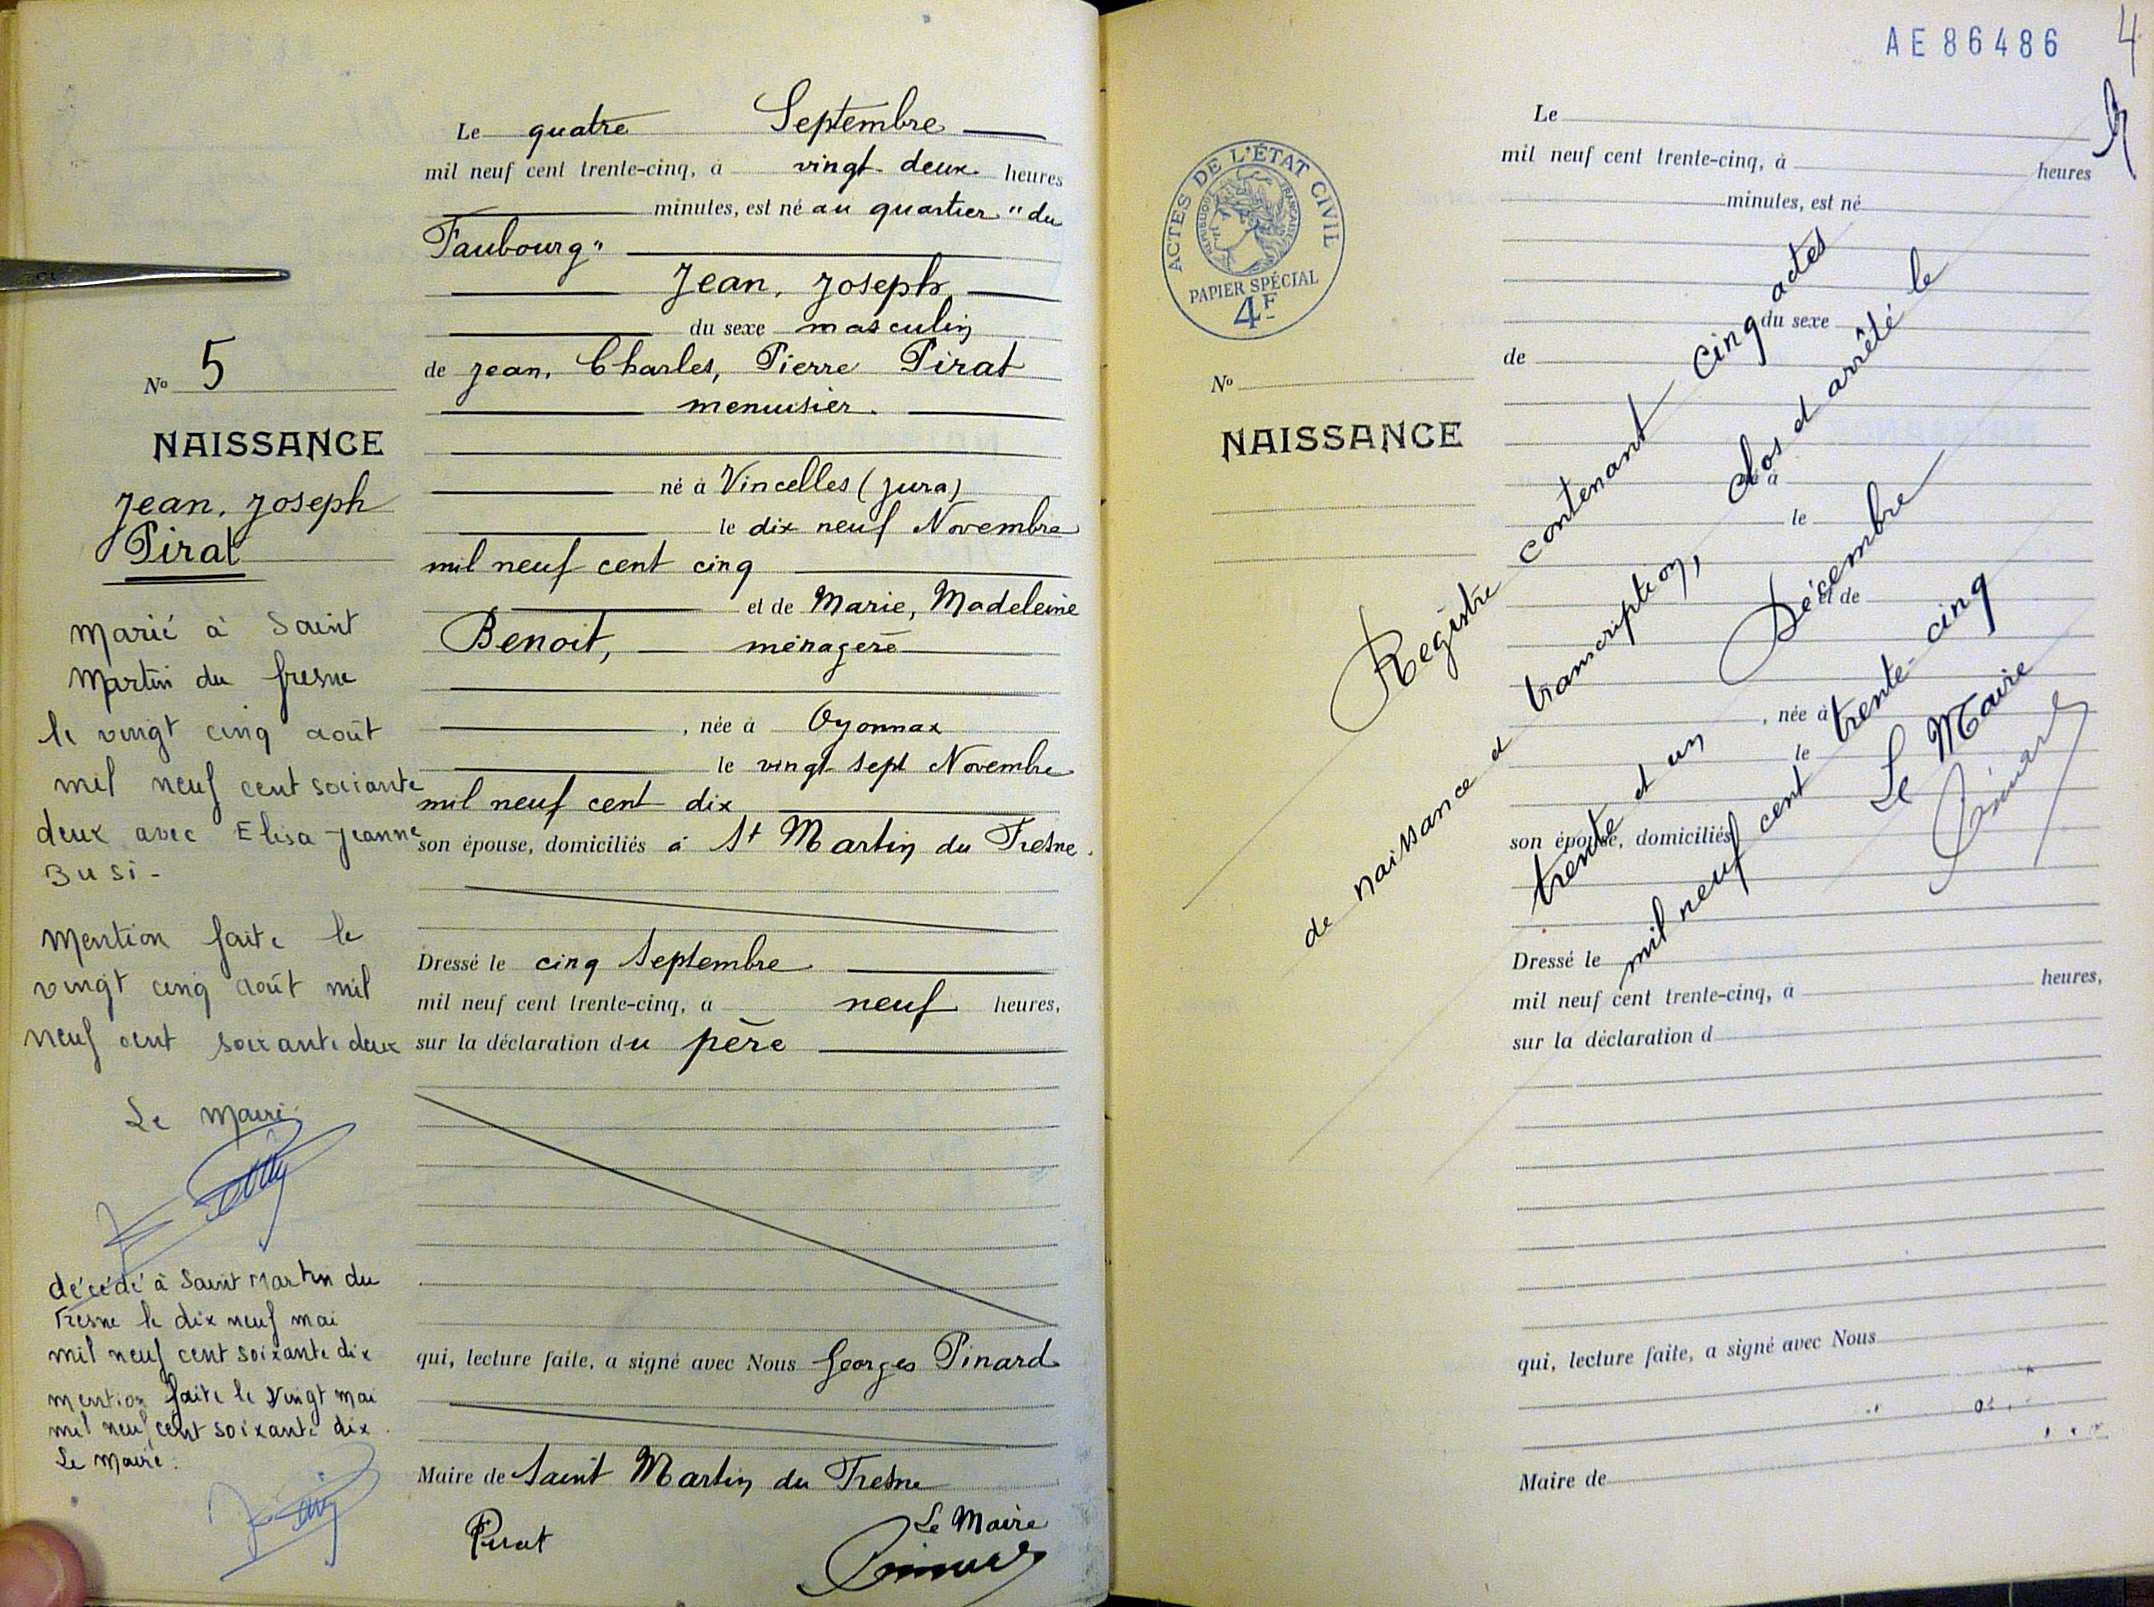 Le quatre Septembre
mil neuf cent trente-cinq, à vingt-deux heures
minutes, est né au quartier "du
Faubourg"
Jean, Joseph
du sexe masculin
de Jean, Charles, Pierre Pirat
menuisier.
né à Vincelles (Jura)
le dix neuf Novembre
mil neuf cent cinq
et de Marie, Madeleine
Benoit, ménagère
, née à Oyonnax
le vingt sept Novembre
mil neuf cent dix
son épouse, domiciliés à St Martin du Fresne.
Dressé le cinq Septembre
mil neuf cent trente-cinq, à neuf heures,
sur la déclaration du père
qui, lecture faite, a signé avec Nous Georges Pinard
Maire de Saint Martin du Fresne
Le Maire
Pirat
No 5
NAISSANCE
Jean, Joseph
Pirat
Marié à Saint
Martin du fresne
le vingt cinq août
mil neuf cent soixante
deux avec Elisa Jeanne
Busi-
Mention faite le
vingt cinq août mil
neuf cent soixante deux
Le Maire
décédé à Saint Martin du
Fresne le dix neuf mai
mil neuf cent soixante dix
mention faite le vingt mai
mil neuf cent soixante dix.
Le Maire.
AE86486
4
ACTES DE L'ÉTAT CIVIL
RÉPUBLIQUE FRANÇAISE
PAPIER SPÉCIAL
4F
No
NAISSANCE
Le
mil neuf cent trente-cinq, à heures
minutes, est né
du sexe
de
né à
le
et de
, née à
le
son épouse, domiciliés
Dressé le
mil neuf cent trente-cinq, à heures,
sur la déclaration d
qui, lecture faite, a signé avec Nous
Maire de
Registre contenant cinq actes
de naissance et transcription, clos et arrêté le
trente et un Décembre
mil neuf cent trente-cinq
Le Maire
Pinard